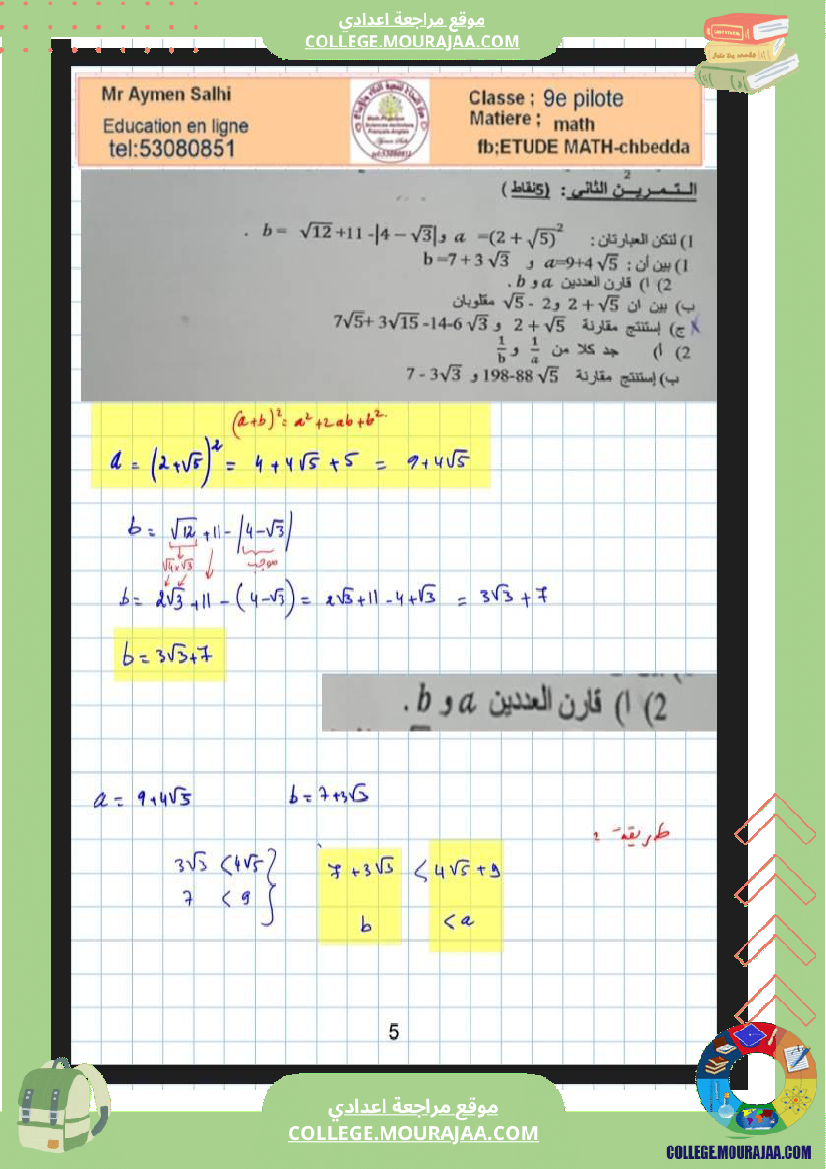 موقع مراجعة اعدادي
COLLEGE.MOURAJAA.COM
Mr Aymen Salhi
Education en ligne
tel:53080851
Classe ; 9e pilote
Matiere ; math
fb;ETUDE MATH-chbedda
التمرين الثاني : (5نقاط)
1) لتكن العبارتان: a =(2 + √5)² و b = √12 +11 -|4 − √3| .
1) بين أن : a=9+4 √5 و b =7 + 3 √3
2) ا) قارن العددين a و b .
ب) بين ان 2 + √5 و 2 - √5 مقلوبان
ج) إستنتج مقارنة 2 + √5 و 7√5+ 3√15 -14-6 √3
2) أ) جد كلا من 1/a و 1/b
ب) إستنتج مقارنة 198-88 √5 و 7 - 3√3
(a+b)² = a² + 2ab + b²
a = (2+√5)² = 4 + 4√5 + 5 = 9+4√5
b = √12 + 11 - |4-√3|
√4×√3 موجب
b = 2√3 + 11 - (4-√3) = 2√3 + 11 - 4 + √3 = 3√3 + 7
b = 3√3+7
2) ا) قارن العددين a و b .
a = 9+4√5 b = 7+3√3
طريقة :
3√3 < 4√5 } 7 + 3√3 < 4√5 + 9
7 < 9 } b < a
5
موقع مراجعة اعدادي
COLLEGE.MOURAJAA.COM
COLLEGE.MOURAJAA.COM